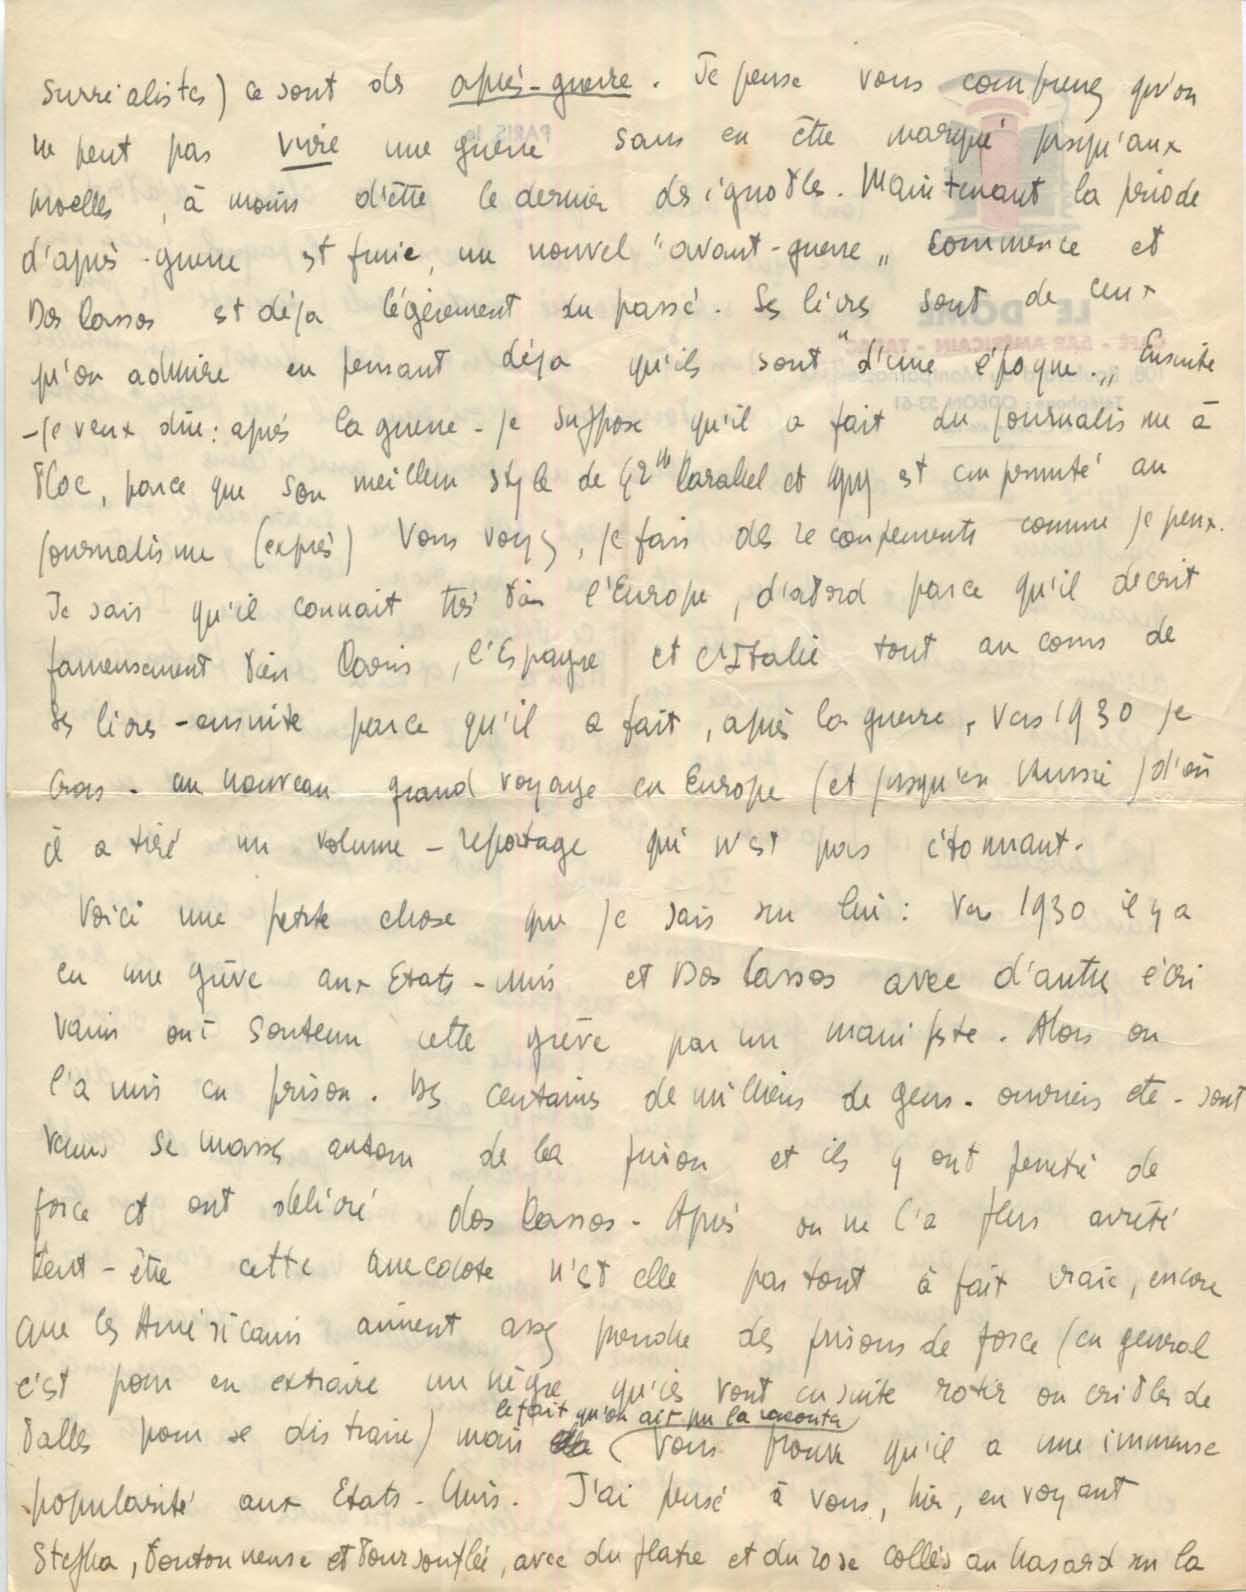 surréalistes) ce sont des après-guerre. Je pense vous comprenez qu'on
ne peut pas vivre une guerre sans en être marqué jusqu'aux
moelles, à moins d'être le dernier des ignobles. Maintenant la période
d'après-guerre est finie, un nouvel "avant-guerre" commence et
Dos Passos est déjà légèrement du passé. Ses livres sont de ceux
qu'on admire en pensant déjà qu'ils sont "d'une époque." Ensuite
- je veux dire : après la guerre - je suppose qu'il a fait du journalisme à
bloc, parce que son meilleur style de 42th Parallel et 1919 est emprunté au
journalisme (exprès) Vous voyez, je fais des recoupements comme je peux.
Je sais qu'il connait très bien l'Europe, d'abord parce qu'il décrit
fameusement bien Paris, l'Espagne et l'Italie tout au cours de
ses livres - ensuite parce qu'il a fait, après la guerre, vers 1930 je
crois - un nouveau grand voyage en Europe (et jusqu'en Russie) d'où
il a tiré un volume - reportage qui n'est pas étonnant.
Voici une petite chose que je sais sur lui : Vers 1930 il y a
eu une grève aux Etats-Unis et Dos Passos avec d'autres écri
vains ont soutenu cette grève par un manifeste. Alors on
l'a mis en prison. Des centaines de milliers de gens - ouvriers etc - sont
venus se masser autour de la prison et ils y ont pénétré de
force et ont délivré dos Passos - Après on ne l'a plus arrêté
Peut-être cette anecdote n'est elle pas tout à fait vraie, encore
que les Américains aiment assez prendre des prisons de force (en general
c'est pour en extraire un nègre qu'ils vont ensuite rotir ou cribler de
le fait qu'on ait pu la raconter
balles pour se distraire) mais vous prouve qu'il a une immense
popularité aux Etats-Unis. J'ai pensé à vous, hier, en voyant
Stepha, boutonneuse et boursouflée, avec du platre et du rose collés au hasard sur la